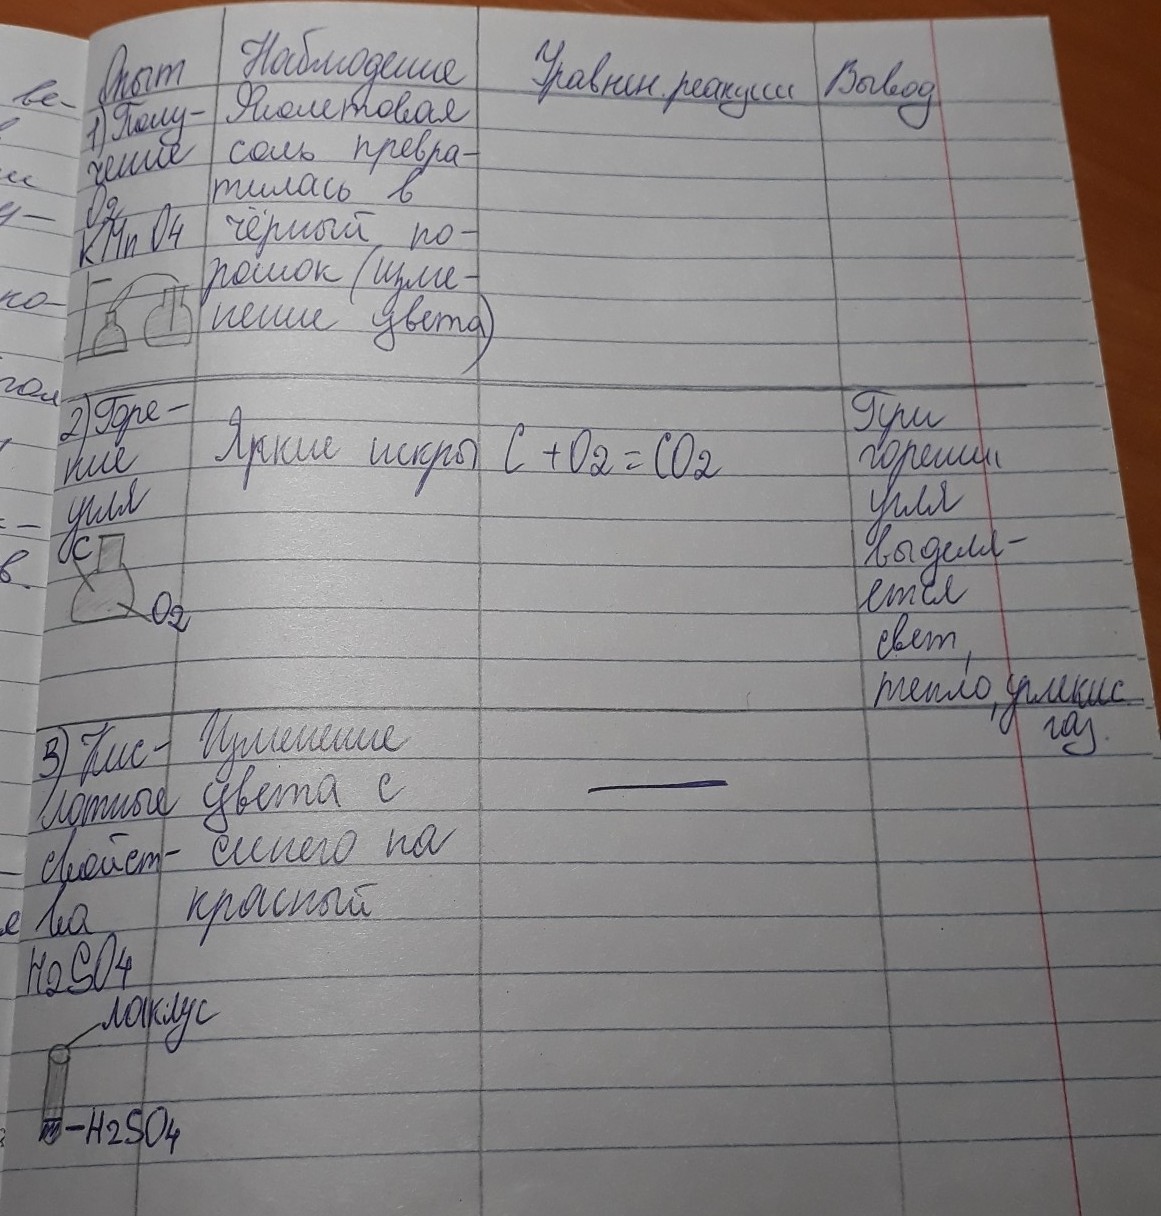 Опыт Наблюдение Уравнен. реакции Вывод
1) Полу-
чение
O2
KMnO4
Фиолетовая
соль превра-
тилась в
чёрный по-
рошок (изме-
нение цвета)
2) Горе-
ние
угля
C
O2
Яркие искры
C + O2 = CO2
При
горении
угля
выделя-
ется
свет,
тепло, углекис
газ.
3) Кис-
лотные
свойст-
ва
H2SO4
лакмус
-H2SO4
Изменение
цвета с
синего на
красный
ве-
в
ко-
в.